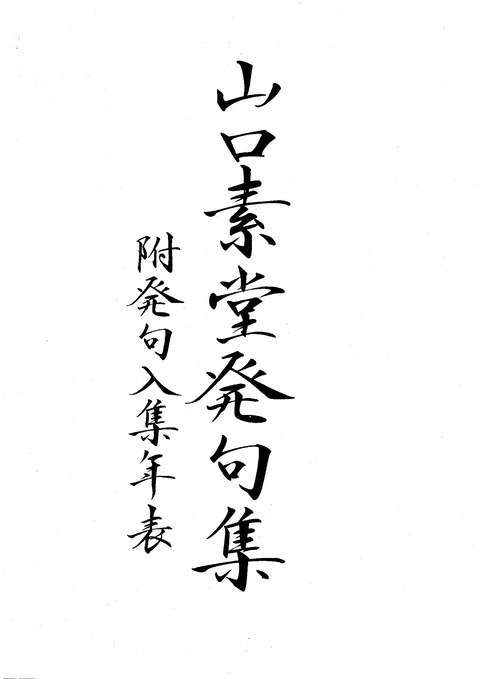 山口素堂発句集
附発句入集年表